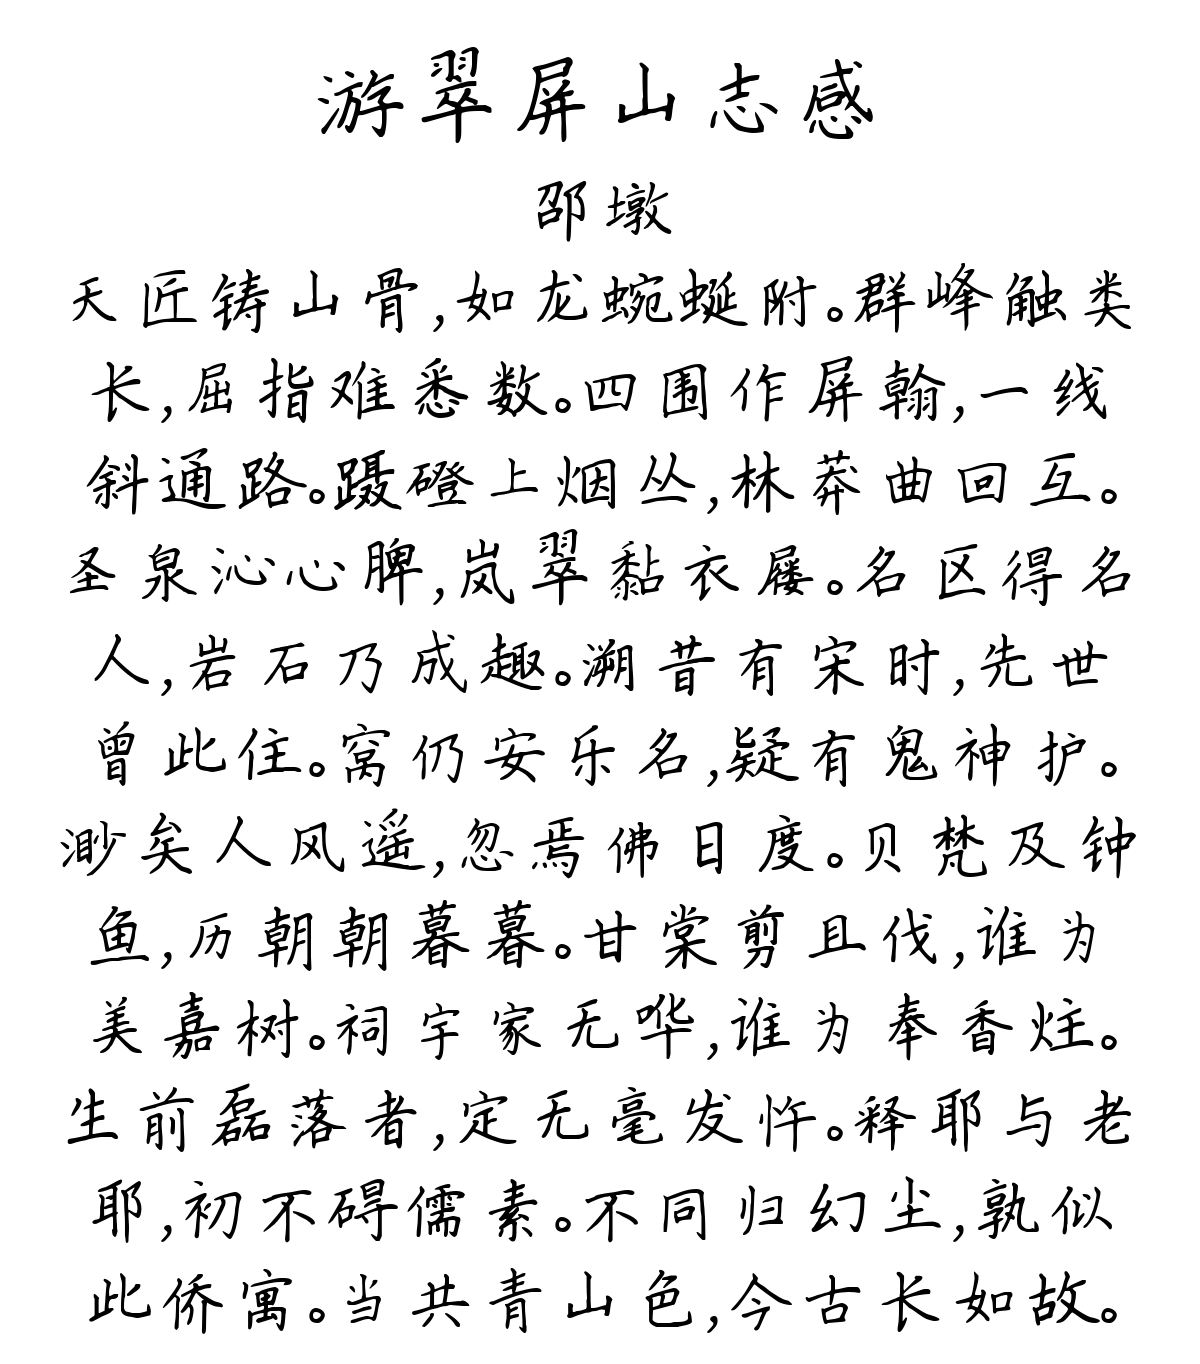 游翠屏山志感
邵墩
天匠铸山骨,如龙蜿蜒附。群峰触类
长,屈指难悉数。四围作屏翰,一线
斜通路。蹑磴上烟丛,林莽曲回互。
圣泉沁心脾,岚翠黏衣屦。名区得名
人,岩石乃成趣。溯昔有宋时,先世
曾此住。窝仍安乐名,疑有鬼神护。
渺矣人风遥,忽焉佛日度。贝梵及钟
鱼,历朝朝暮暮。甘棠剪且伐,谁为
美嘉树。祠宇家无哗,谁为奉香炷。
生前磊落者,定无毫发忤。释耶与老
耶,初不碍儒素。不同归幻尘,孰似
此侨寓。当共青山色,今古长如故。